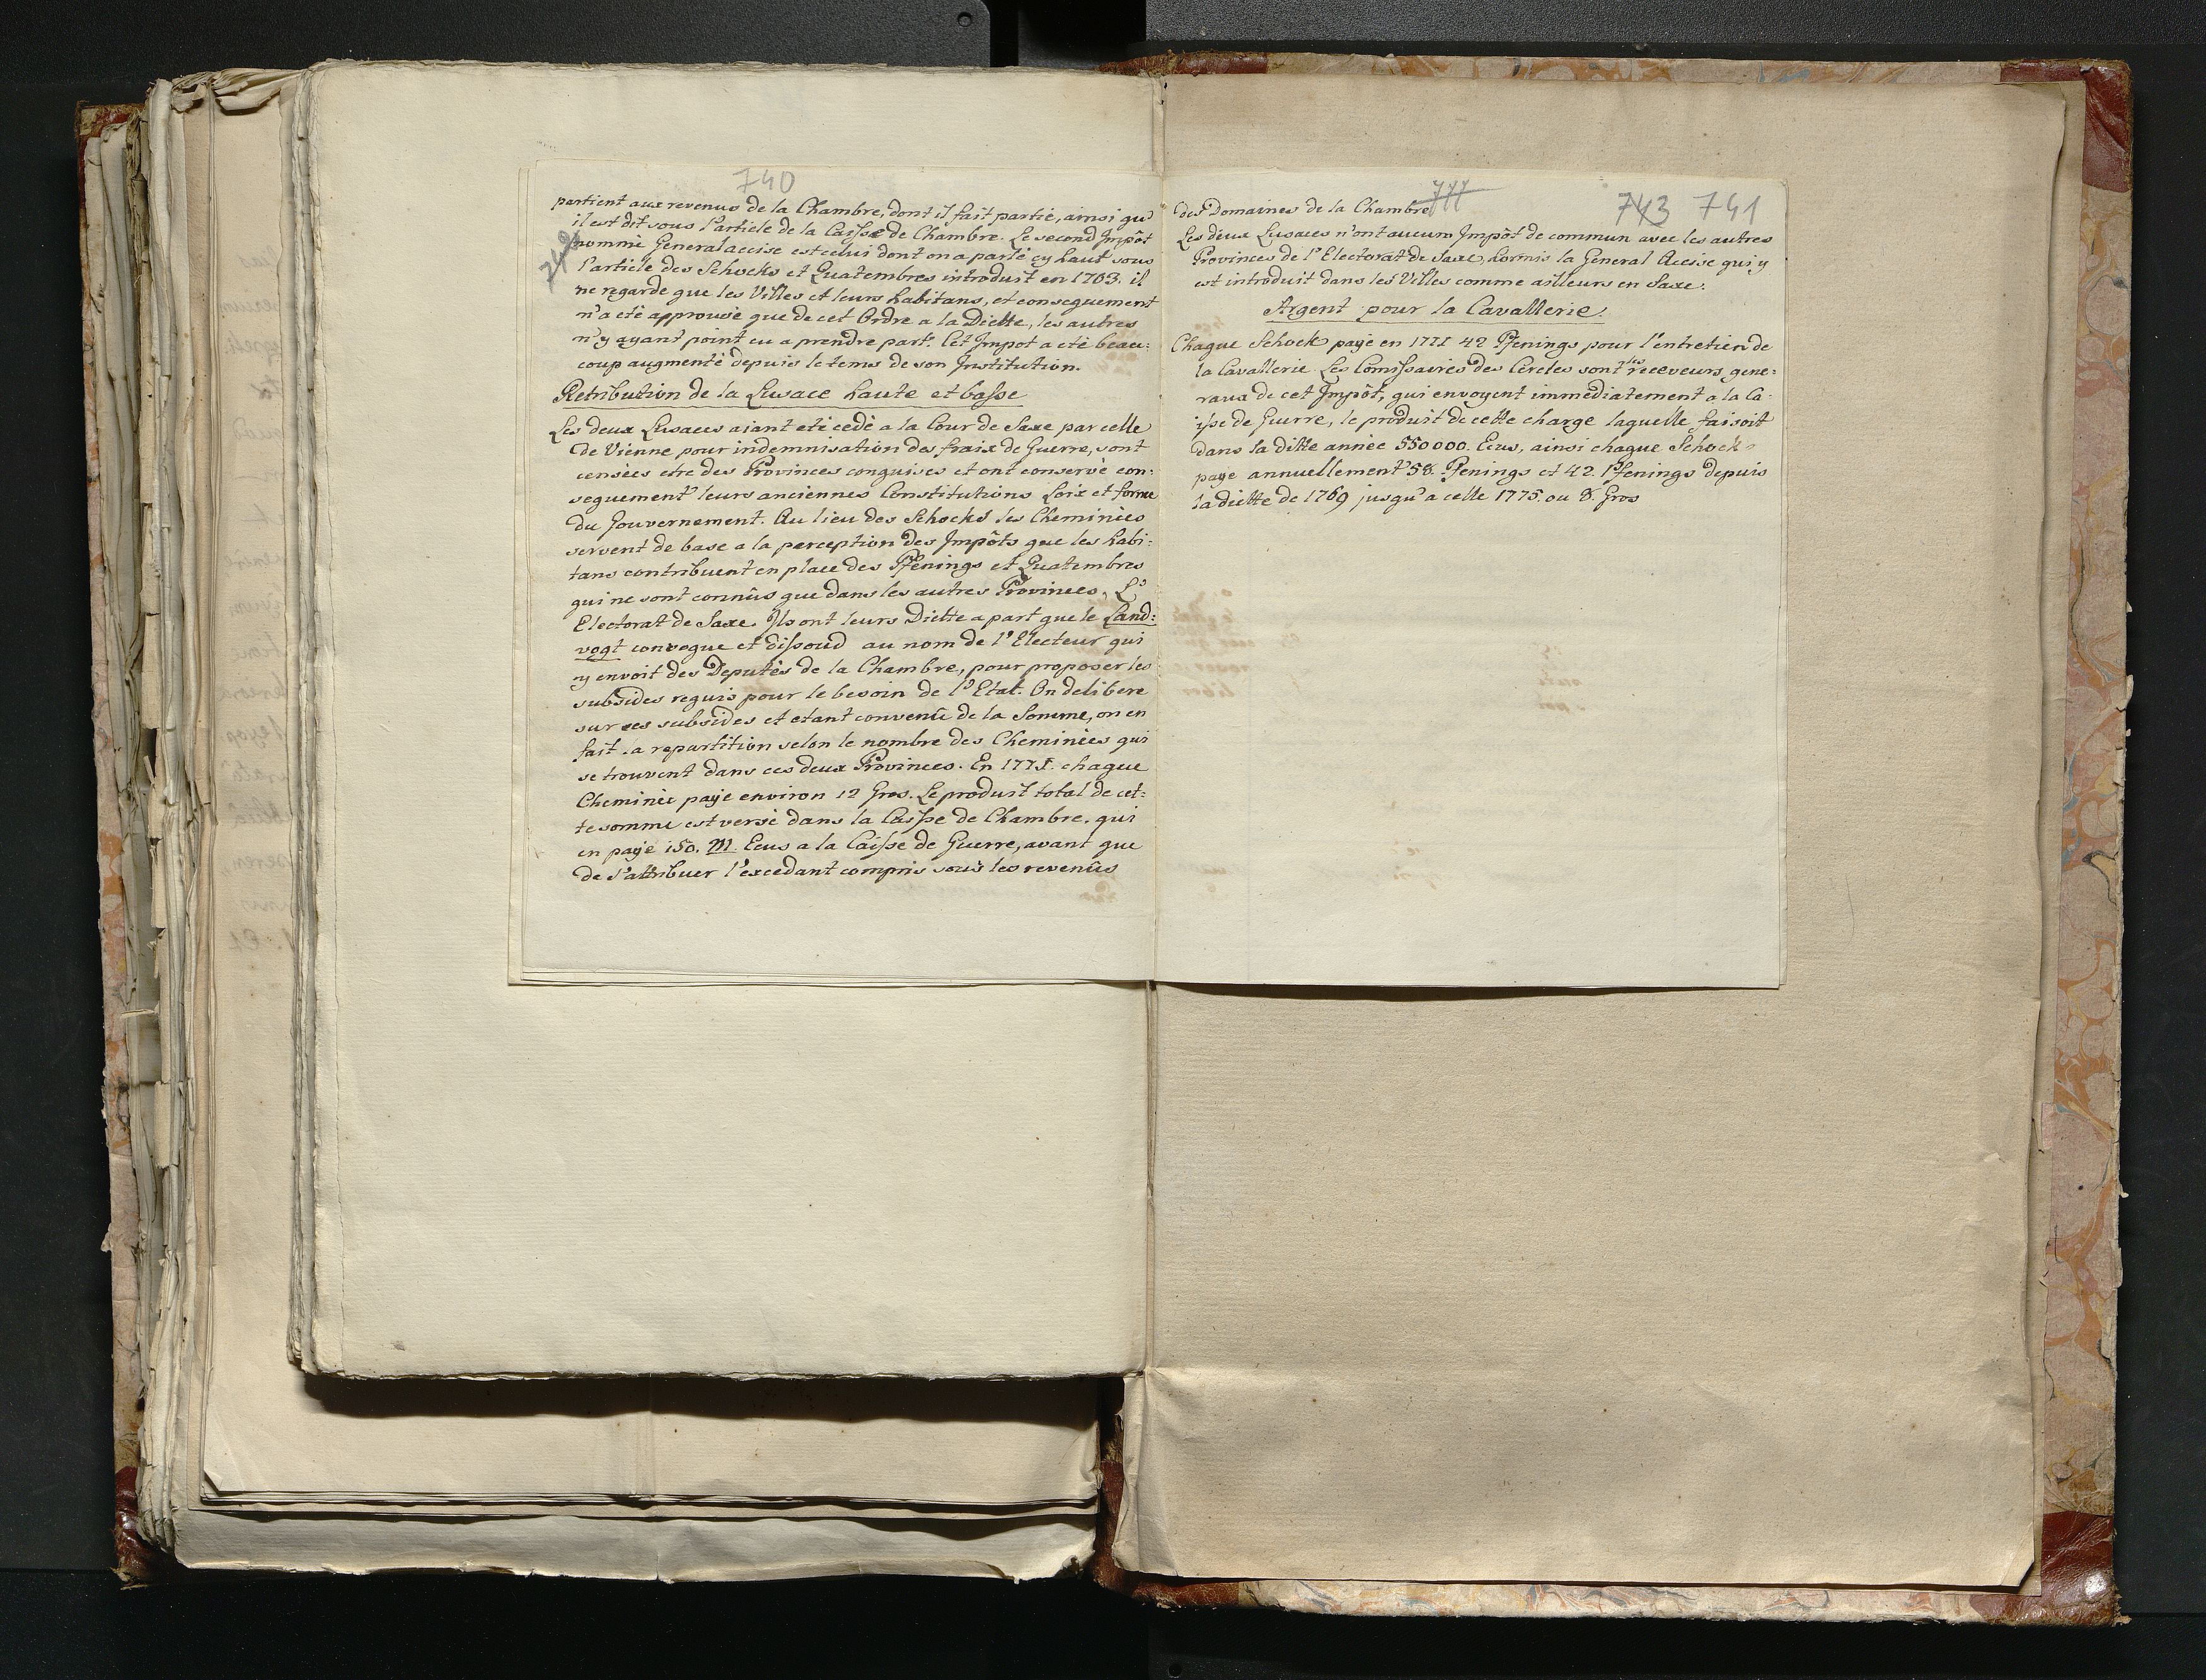 740
partient aux revenus de la Chambre, dont il fait partie, ainsi qu'
il est dit sous l'article de la Caisse de Chambre. Le second Impôt
nommé General accise est celui dont on a parlé cy haut sous
l'article des Schocks et Quatembres introduit en 1703. il
ne regarde que les Villes et leurs habitans, et consequement
n'a eté approuvé que de cet Ordre a la Diette, les autres
n'y ayant point eu a prendre part. Cet Impot a eté beau:
coup augmenté depuis le tems de son Institution.
Retribution de la Lusace haute et basse
Les deux Lusaces aiant eté cedé a la Cour de Saxe par celle
de Vienne pour indemnisation des fraix de Guerre, sont
censées etre des Provinces conquises et ont conservé con:
sequement leurs anciennes Constitutions Loix et forme
du Gouvernement. Au lieu des Schocks les Cheminées
servent de base a la perception des Impôts que les habi:
tans contribuent en place des Pfenings et Quatembres
qui ne sont connûs que dans les autres Provinces, L'
Electorat de Saxe. Ils ont leurs Diette a part que le Land:
vogt convoque et dissoud au nom de l'Electeur qui
y envoit des Deputés de la Chambre, pour proposer les
subsides requis pour le besoin de l'Etat. On delibere
sur ces subsides et etant convenû de la Somme, on en
fait la repartition selon le nombre des Cheminées qui
se trouvent dans ces deux Provinces. En 1775. chaque
Cheminée paye environ 12 Gros. Le produit total de cet:
te somme est versé dans la Caisse de Chambre. qui
en paye 150. M. Ecus a la Caisse de Guerre, avant que
de s'attribuer l'excedant compris sous les revenûs
743 741
des Domaines de la Chambre
Les deux Lusaces n'ont aucum Impôt de commun avec les autres
Provinces de l'Electorat de Saxe, hormis la General Accise qui y
est introduit dans les Villes comme ailleurs en Saxe.
Argent pour la Cavallerie.
Chaque Schock paye en 1775 42 Pfenings pour l'entretien de
la Cavallerie. Les Comissaires des Cercles sont les receveurs gene:
raux de cet Impôt, qui envoyent immediatement a la Ca:
isse de Guerre, le produit de cette charge laquelle faisoit
dans la ditte année 550000. Ecus, ainsi chaque Schock
paye annuellement 58. Pfenings et 42. Pfenings depuis
la diette de 1769 jusqu'a celle 1775. ou 8. Gros